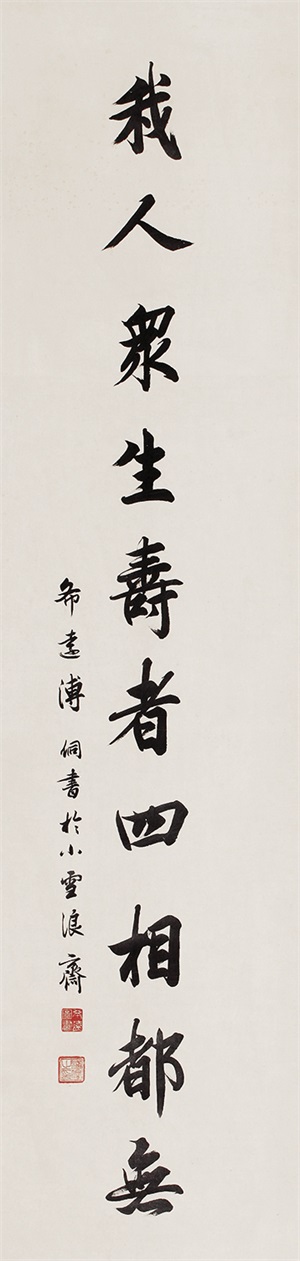 我人眾生壽者四相都無
希遠溥侗書於小雪浪齋